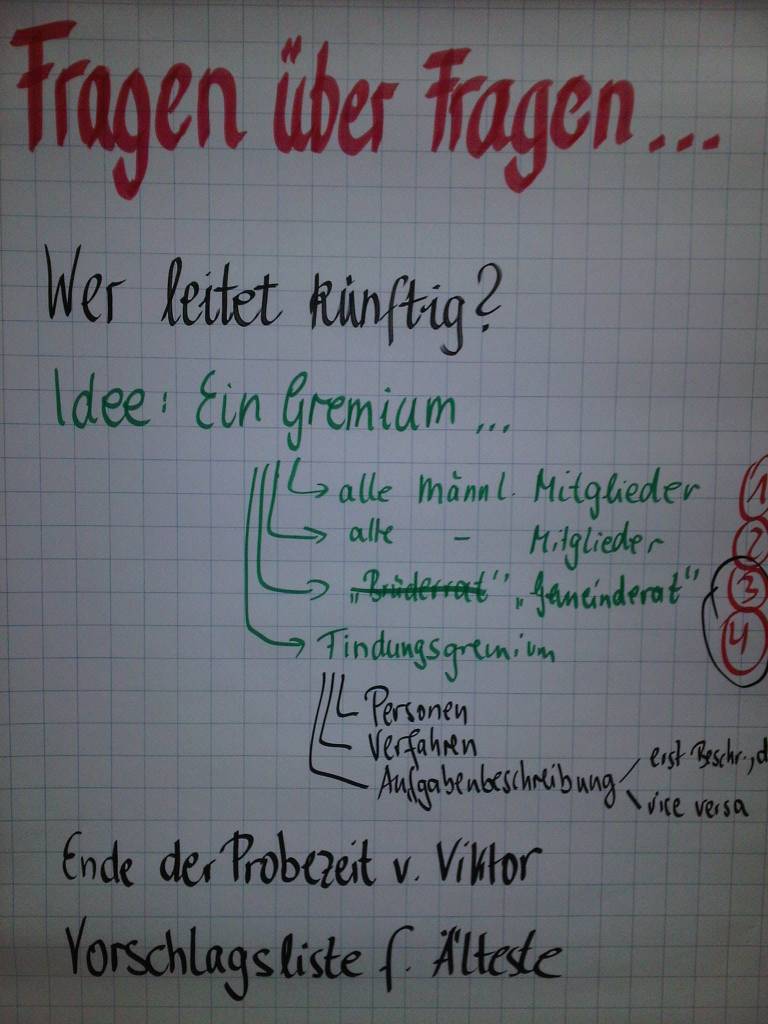 Fragen über Fragen...
Wer leitet künftig?
Idee: Ein Gremium ...
alle männl. Mitglieder 1
alle – Mitglieder 2
„Brüderrat“ „Gemeinderat“ 3
Findungsgremium 4
Personen
Verfahren
Aufgabenbeschreibung
erst Beschr., d
vice versa
Ende der Probezeit v. Viktor
Vorschlagsliste f. Älteste